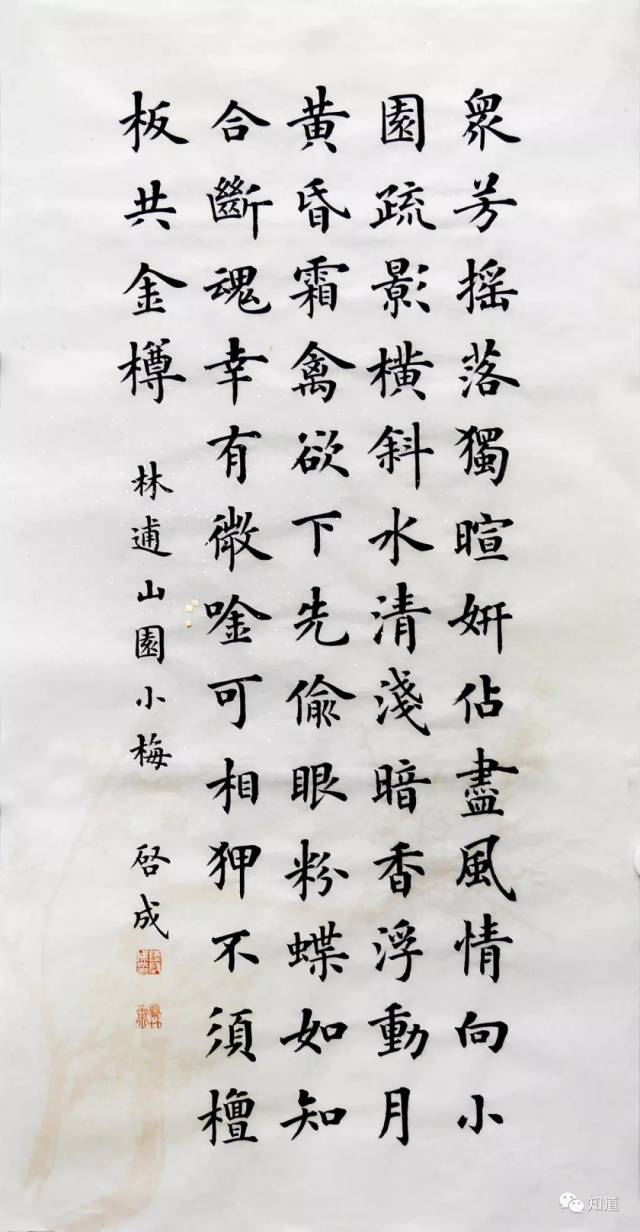 眾芳搖落獨暄妍佔盡風情向小
園疏影橫斜水清淺暗香浮動月
黃昏霜禽欲下先偷眼粉蝶如知
合斷魂幸有微唫可相狎不須檀
板共金樽
林逋山園小梅 啓成
知道